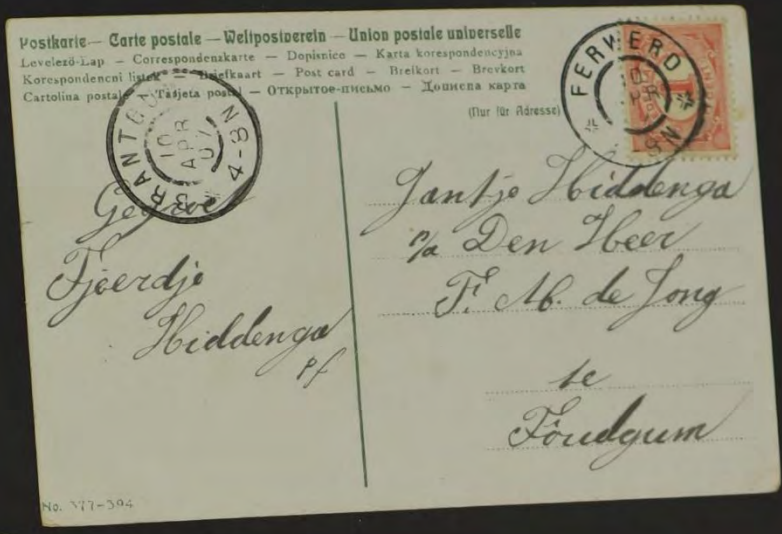 Postkarte — Carte postale — Weltpostverein — Union postale universelle
Levelező-Lap — Correspondenzkarte — Dopisnice — Karta korespondencyjna
Korespondencni listek — Briefkaart — Post card — Brefkort — Brevkort
Cartolina postale — Tarjeta postal — Открытое-письмо — Дописна карта
(Nur für Adresse)
FERWERD
10 APR
BRANTGUM
10 APR 07
4-8N
Jantje Hiddenga
p/a Den Heer
F. M. de Jong
te
Foudgum
Gegroet
Tjeerdje
Hiddenga
pf
No. 377-394